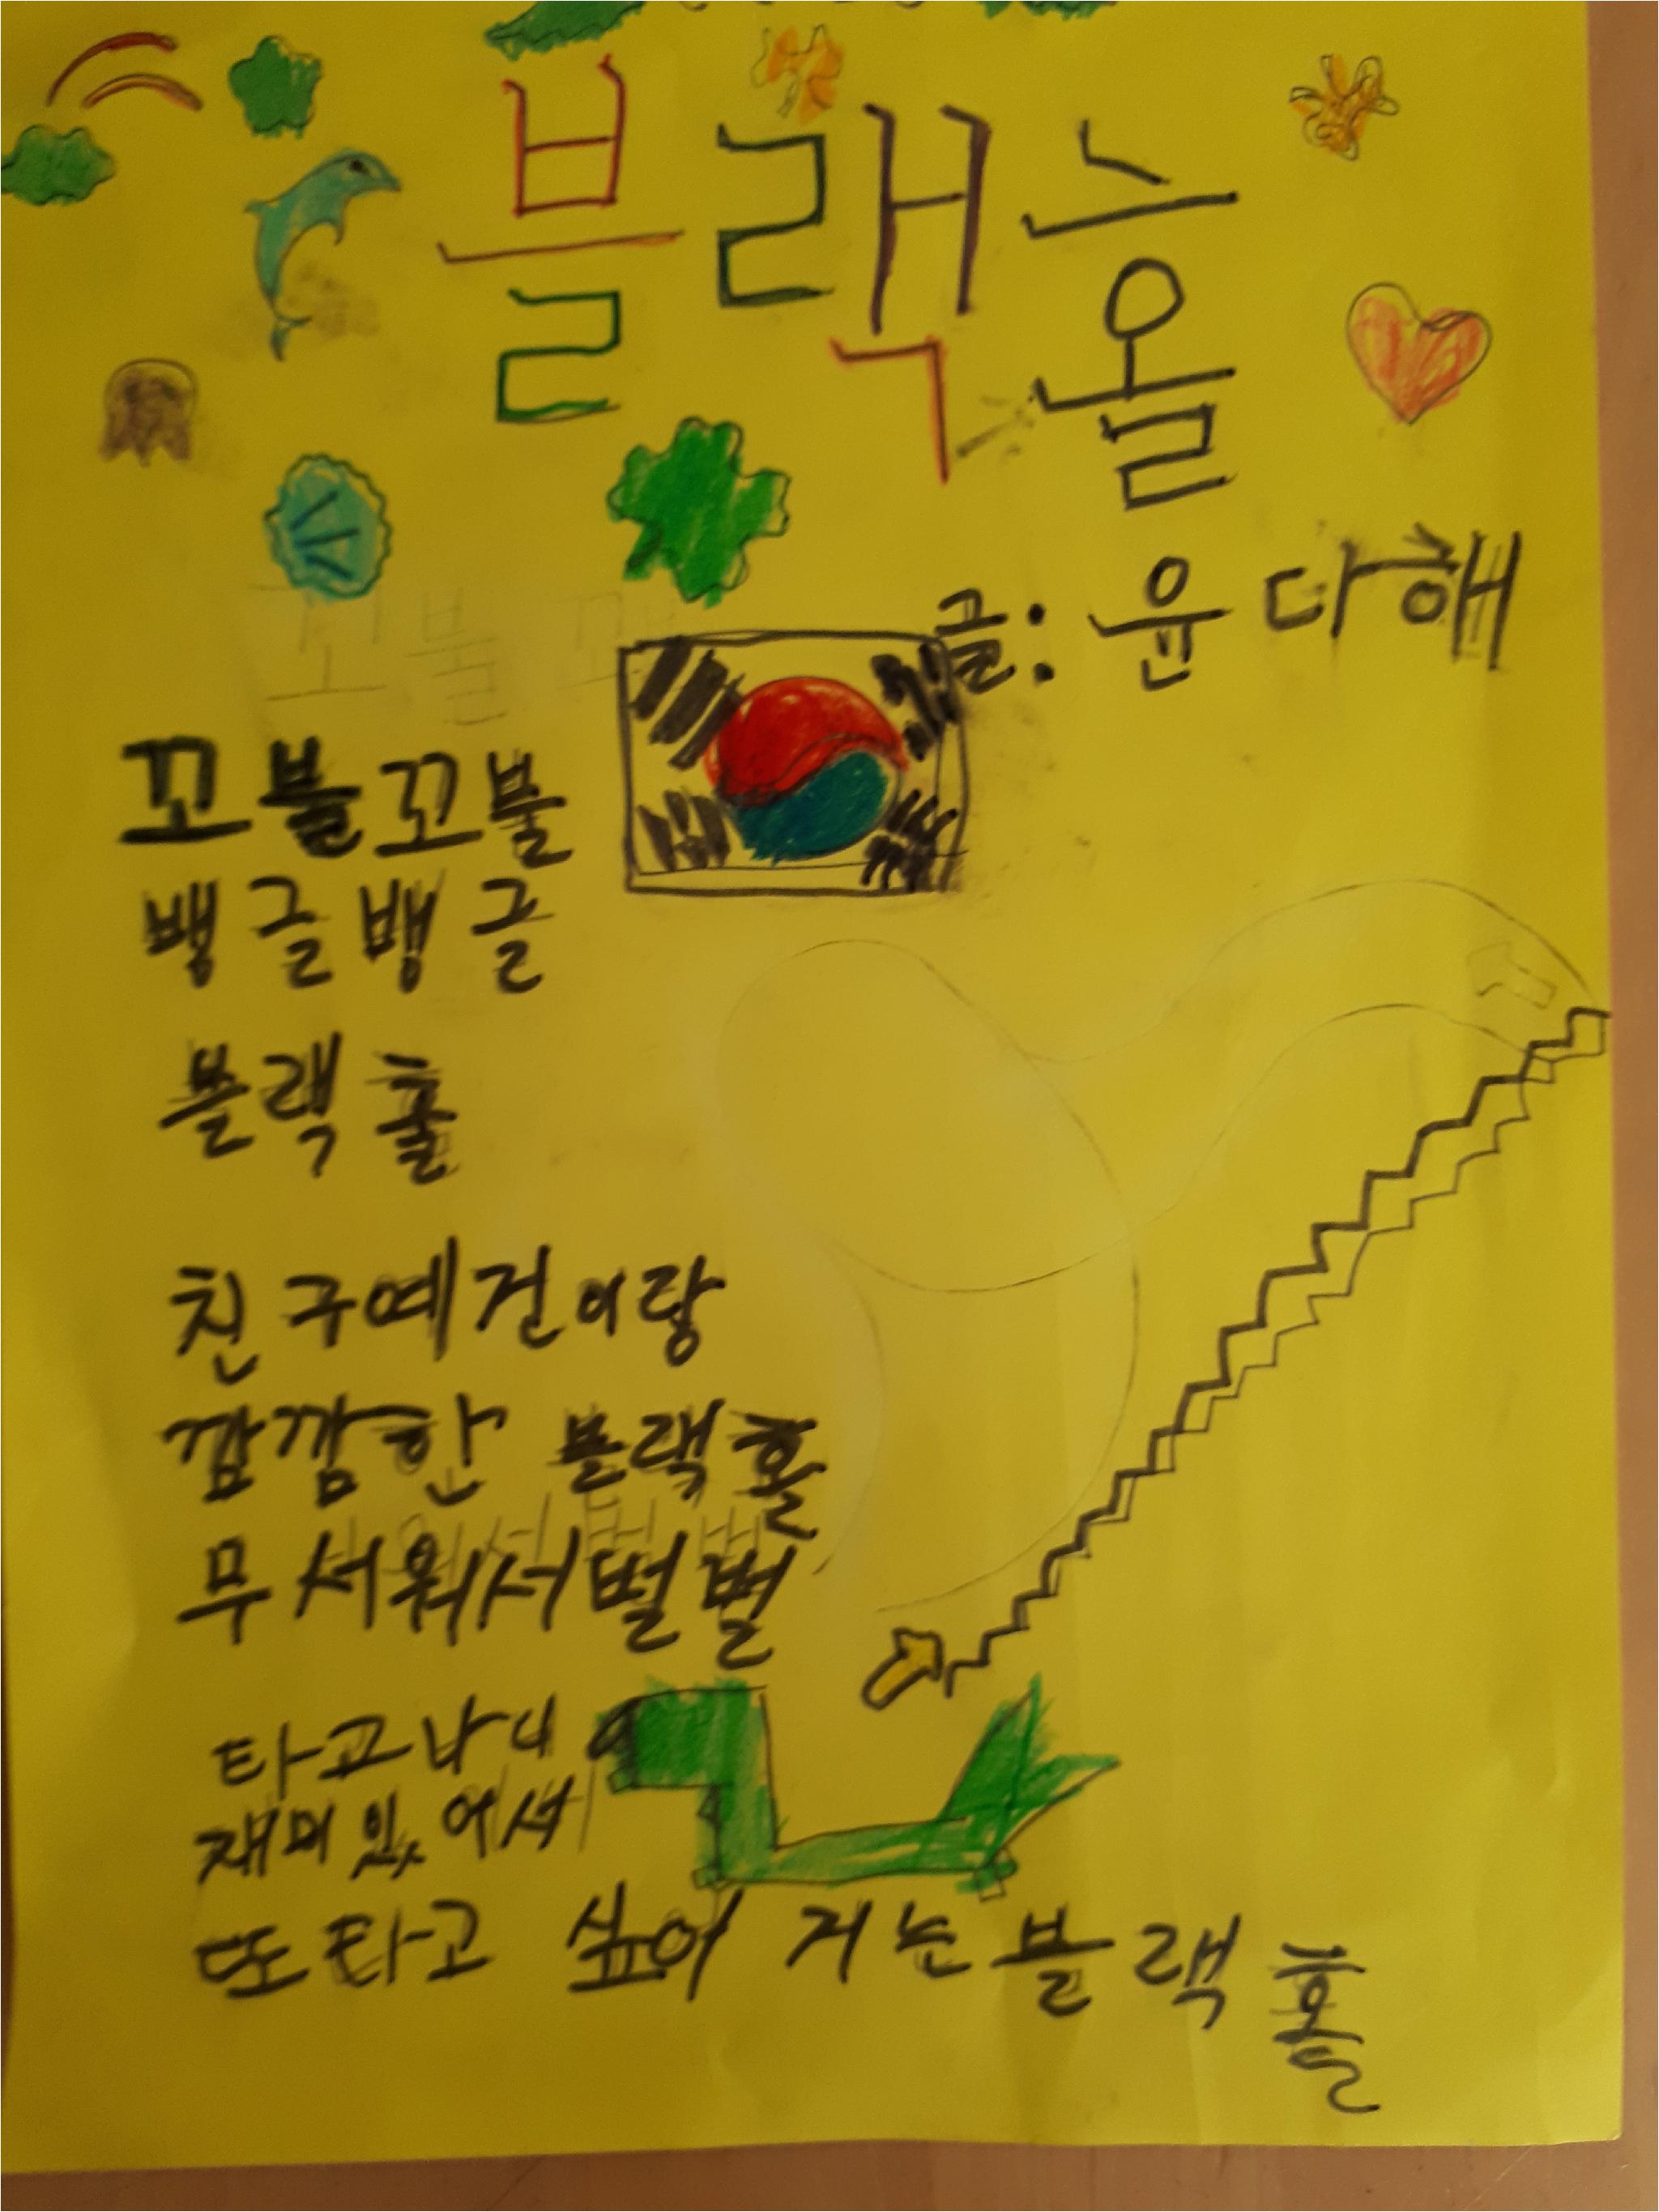 블랙홀
글: 윤다해
꼬불꼬불
뱅글뱅글
블랙홀
친구예건이랑
깜깜한 블랙홀
무서워서벌벌
타고나니
재미있어서
또타고 싶어 지는블랙홀